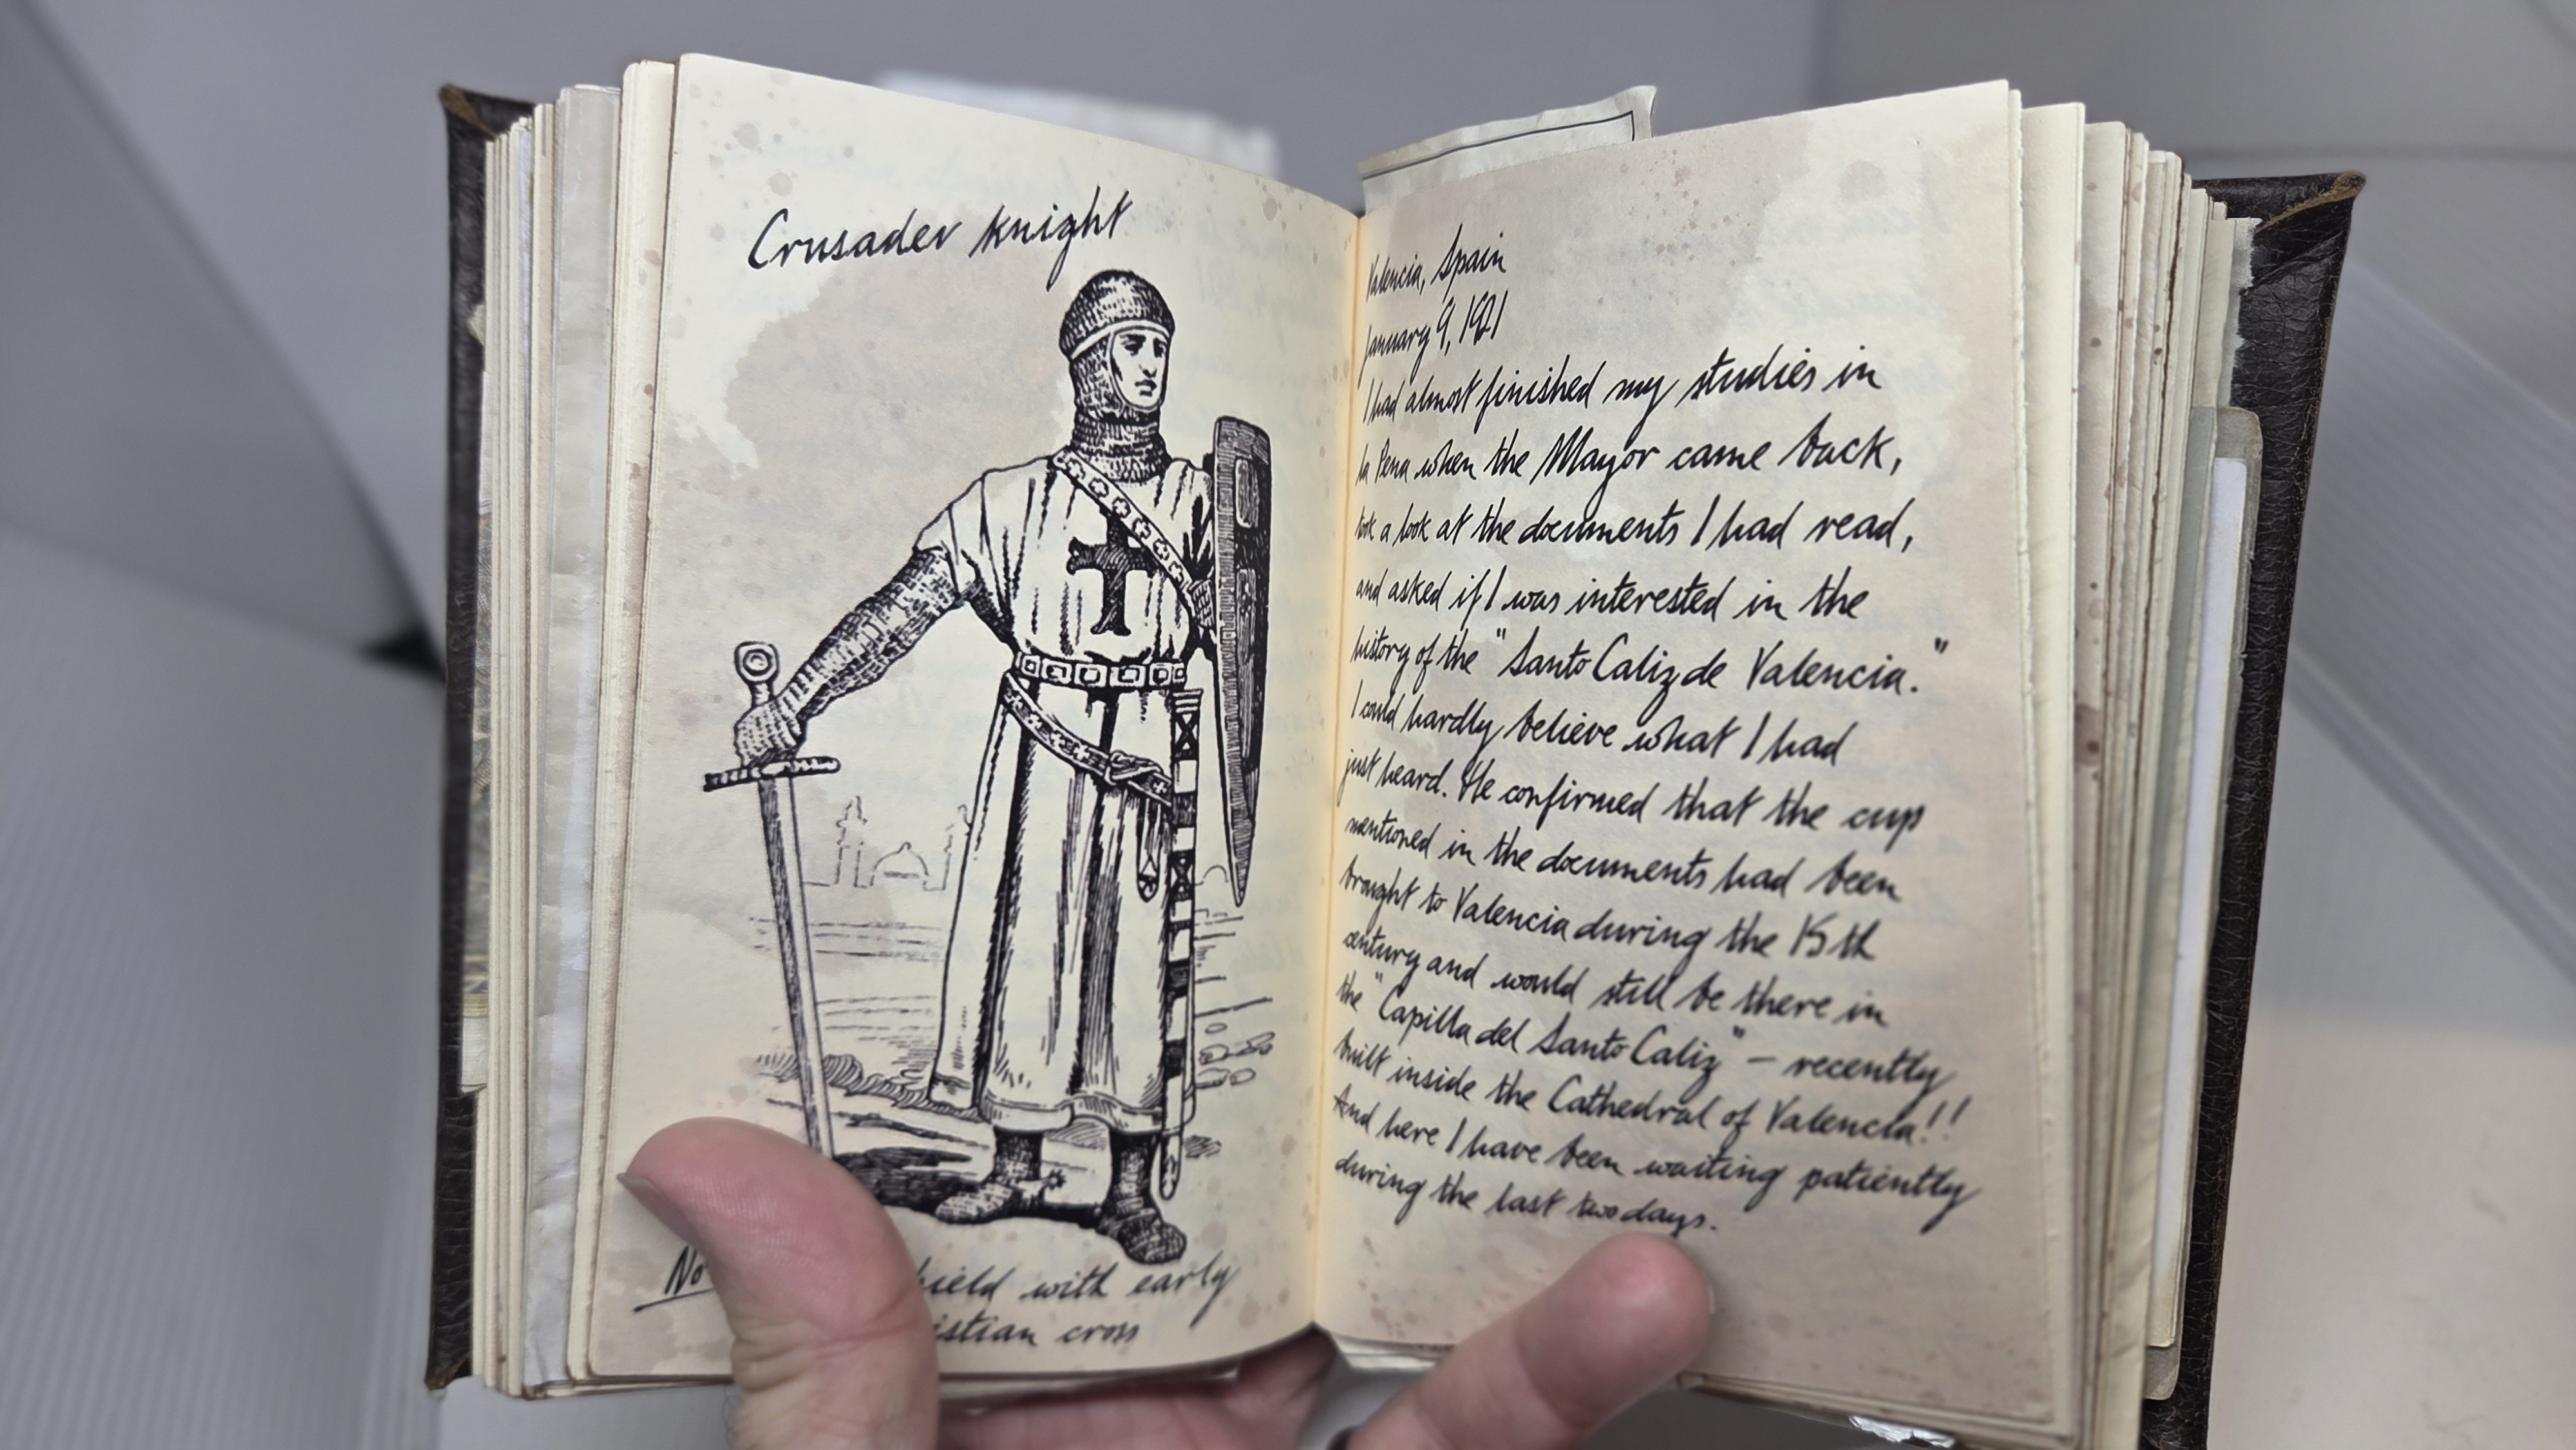 Crusader knight
No
hield with early
istian cross
Valencia, Spain
January 9, 1921
I had almost finished my studies in
la Pena when the Mayor came back,
took a look at the documents I had read,
and asked if I was interested in the
history of the "Santo Caliz de Valencia."
I could hardly believe what I had
just heard. He confirmed that the cup
mentioned in the documents had been
brought to Valencia during the 15th
century and would still be there in
the "Capilla del Santo Caliz" – recently
built inside the Cathedral of Valencia!!
And here I have been waiting patiently
during the last two days.